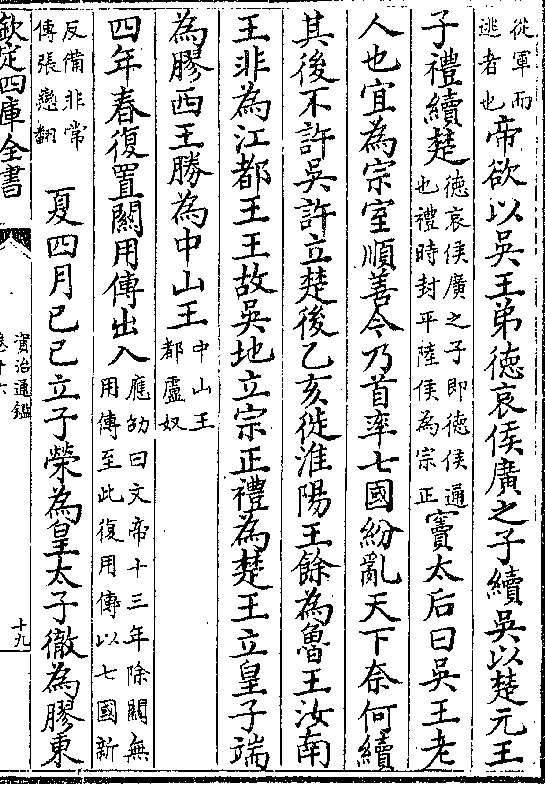 從軍而
逃者也
帝欲以吳王弟德哀侯廣之子續吳以楚元王
子禮續楚
德哀侯廣之子即德侯通
也禮時封平陸侯為宗正
竇太后曰吳王老
人也宜為宗室順善今乃首率七國紛亂天下奈何續
其後不許吳許立楚後乙亥徙淮陽王餘為魯王汝南
王非為江都王王故吳地立宗正禮為楚王立皇子端
為膠西王勝為中山王
中山王
都盧奴
四年春復置關用傳出入
應劭曰文帝十三年除關無
用傳至此復用傳以七國新
反備非常
傳張戀翻
夏四月己巳立子榮為皇太子徹為膠東
欽定四庫全書
資治通鑑
卷十六
十九